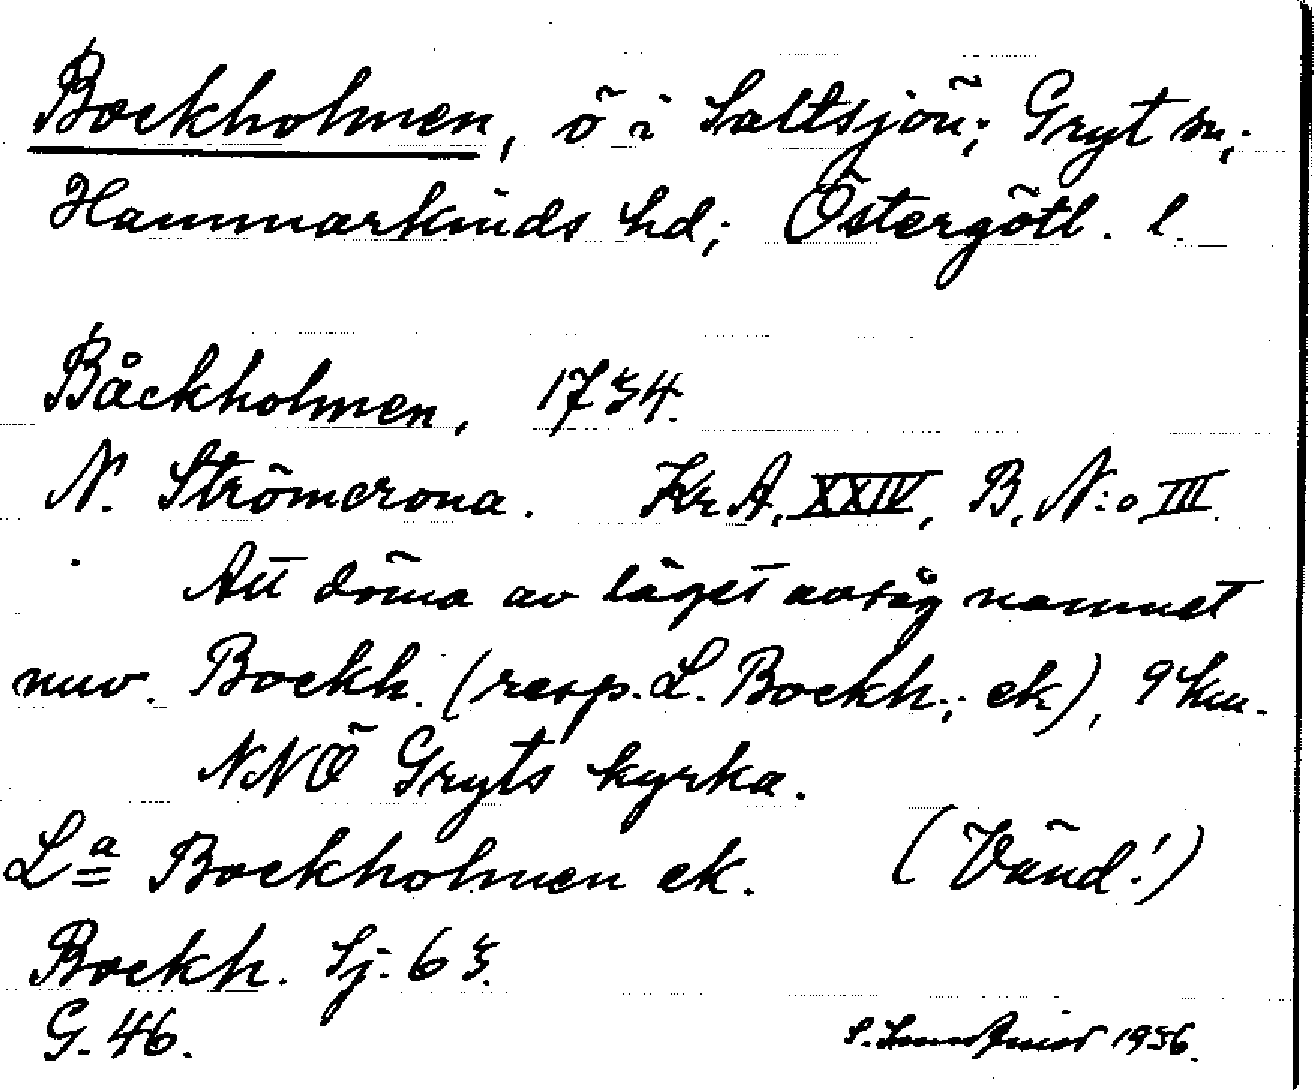 Bockholmen, ö i Saltsjön; Gryt sn;
Hammarkinds hd; Östergötl. l.
Båckholmen, 1734.
N. Strömcrona. Kr. A. XXIV, B. N:o III.
Att döma av läget avsåg namnet
nuv. Bockh. (resp. L. Bockh.; ek), 9 km.
NNÖ Gryts kyrka.
La Bockholmen ek. (Vänd!)
Bockh. Sj. 63.
G. 46.
1936.